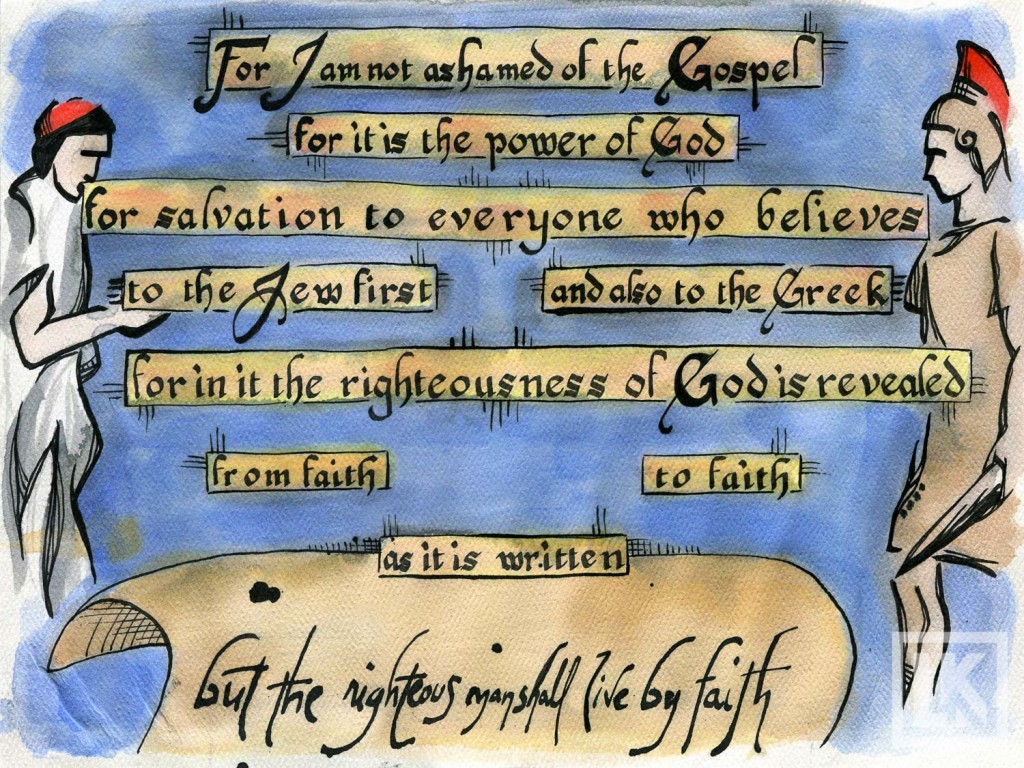 For I am not ashamed of the Gospel
for it is the power of God
for salvation to everyone who believes
to the Jew first
and also to the Greek
for in it the righteousness of God is revealed
from faith
to faith
as it is written
but the righteous man shall live by faith
LK